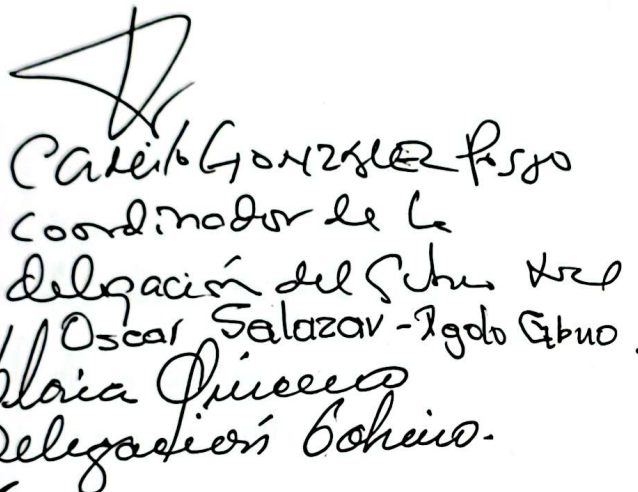 Camilo González Posso
Coordinador de la
delegación del Gobierno
Oscar Salazar -
Gloria Quiceno
Delegación Gobierno.